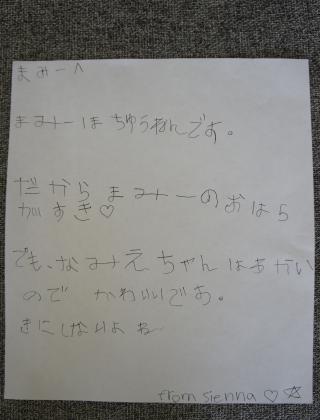 まみーへ
まみーは ちゅうねんです。
だから まみーの おはら
が すき♡
でも、なみえ ちゃん は あかい
ので かわいいです。
きに しないよ ね〜
from sienna ♡ ☆